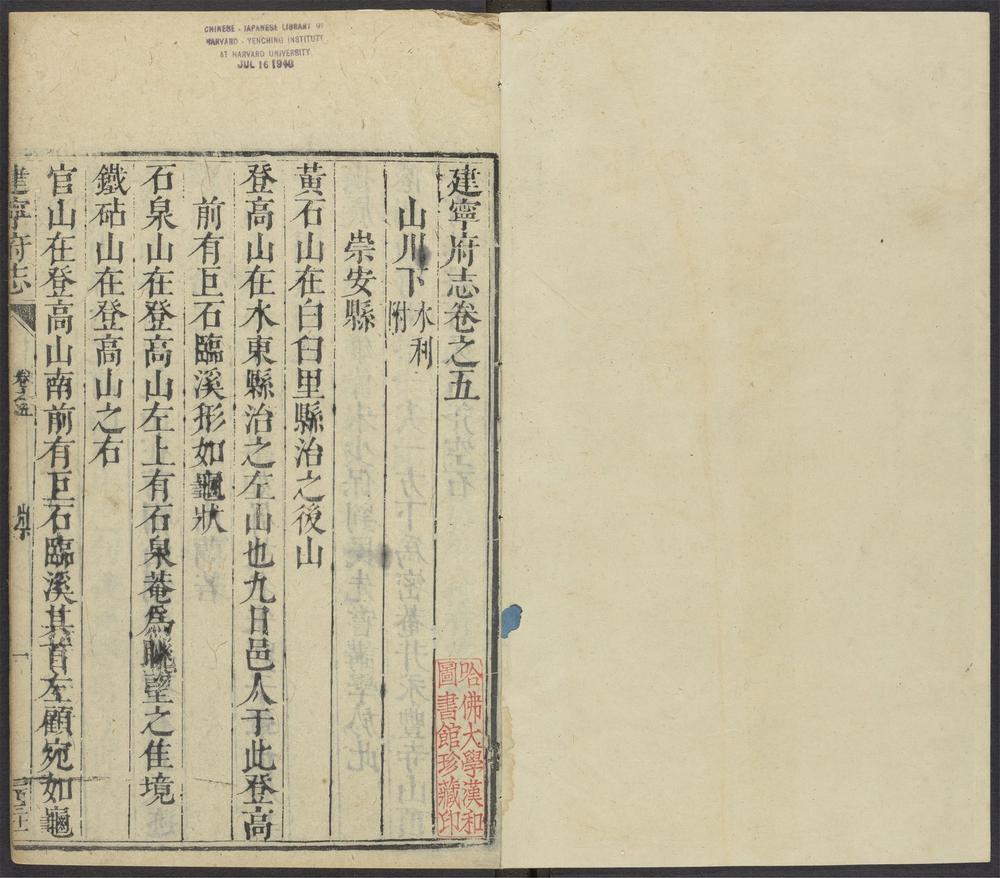 CHINESE - JAPANESE LIBRARY OF
HARVARD - YENCHING INSTITUTE
AT HARVARD UNIVERSITY
JUL 16 1940
建寧府志卷之五
山川下 水利附
崇安縣
黃石山在白白里縣治之後山
登高山在水東縣治之左山也九日邑人于此登高
前有巨石臨溪形如龜狀
石泉山在登高山左上有石泉菴為眺望之佳境
鐵砧山在登高山之右
官山在登高山南前有巨石臨溪其首左顧宛如龜
建寧府志
卷之五
一
哈佛大學漢和
圖書館珍藏印